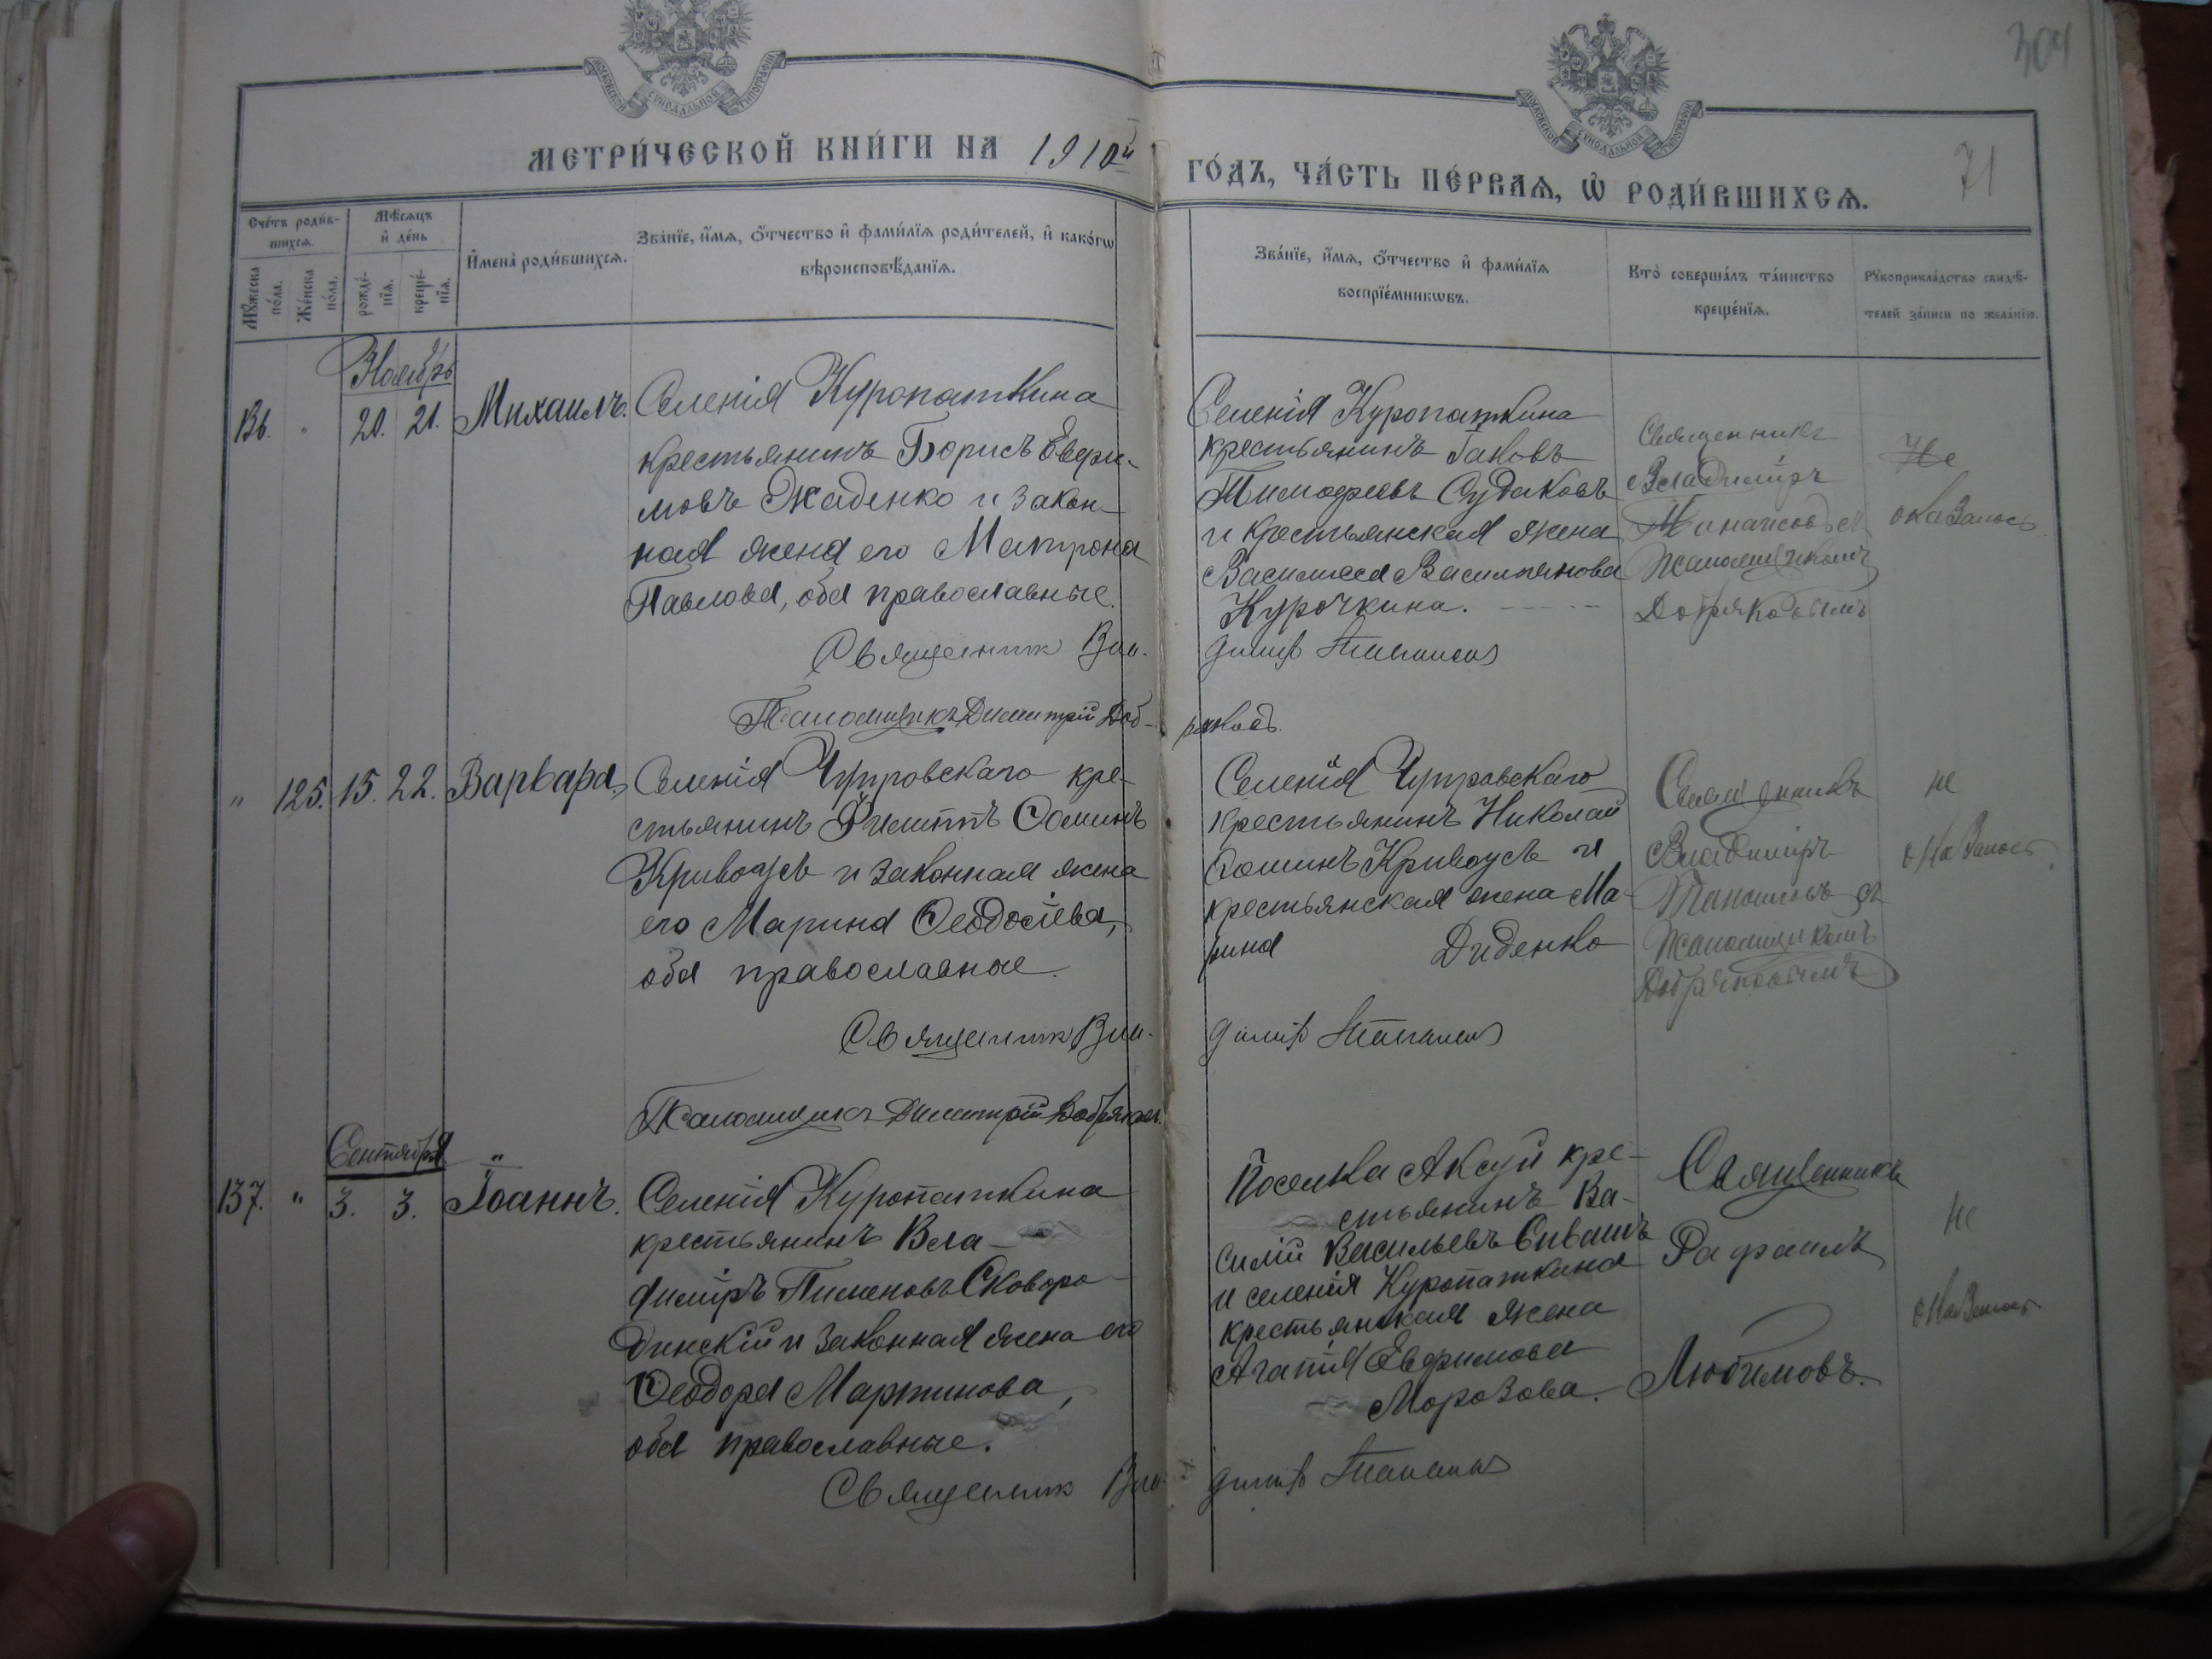 304
МОСКОВСКОЙ СУНОДАЛЬНОЙ ТИПОГРАФІИ
МОСКОВСКОЙ СУНОДАЛЬНОЙ ТИПОГРАФІИ
МЕТРИ́ЧЕСКОЙ КНИ́ГИ НА 1910й ГО́ДЪ, ЧА́СТЬ ПЕ́РВАѦ, Ѡ҆ РОДИ́ВШИХСѦ.
71
Сче́тъ роди́в-
шихсѧ.
Мꙋжеска по́ла.
Же́нска по́ла.
Мѣ́сѧцъ и҆ де́нь
рожде́-
нїѧ.
креще́-
нїѧ.
И҆мена̀ роди́вшихсѧ.
Зва́нїе, и҆́мѧ, о҆́тчество и҆ фами́лїѧ роди́телей, и҆ како́гѡ
вѣроисповѣ́данїѧ.
Зва́нїе, и҆́мѧ, о҆́тчество и҆ фами́лїѧ
воспрїе́мникѡвъ.
Кто̀ соверша́лъ та́инство
креще́нїѧ.
Рꙋкоприкла́дство свидѣ́-
телей за́писи по жела́нїю.
Ноябрь
" 20. 21. Михаилъ.
Селенія Куропаткина
крестьянинъ Борисъ Евфи-
мовъ Жаденко и закон-
ная жена его Матрона
Павлова, оба православные.
Священник Вла-
димір
Псаломщикъ Димитрій Доб-
ряковъ.
Селенія Куропаткина
крестьянинъ Іаковъ
Тимофеевъ Судаковъ
и крестьянская жена
Василисса
Курочкина.
Священникъ
Владиміръ
съ
псаломщикомъ
Добряковымъ
Не
оказалось
" 125. 15. 22. Варвара,
Селенія Чупровскаго кре-
стьянинъ Филиппъ Ѳоминъ
Кривоусъ и законная жена
его Марина Ѳеодосіева,
оба православные.
Священник Вла-
димір
Псаломщикъ Димитрій Добряковъ.
Селенія Чупровскаго
крестьянинъ Николай
Ѳоминъ Кривоусъ и
крестьянская жена Ма-
рина Диденко
Священникъ
Владиміръ
съ
псаломщикомъ
Добряковымъ
не
оказалось
Сентября "
137. " 3. 3. Іоаннъ.
Селенія Куропаткина
крестьянинъ Вла-
диміръ Пименовъ Сковоро-
динскій и законная жена его
Ѳеодора Мартинова,
оба православные.
Священник Вла-
димір
Поселка Аксуй кре-
стьянинъ Ва-
силій Васильевъ Сивашъ
и селенія Куропаткина
крестьянская жена
Агапія Евфимова
Морозова.
Священникъ
Рафаилъ
Любимовъ.
не
оказалось